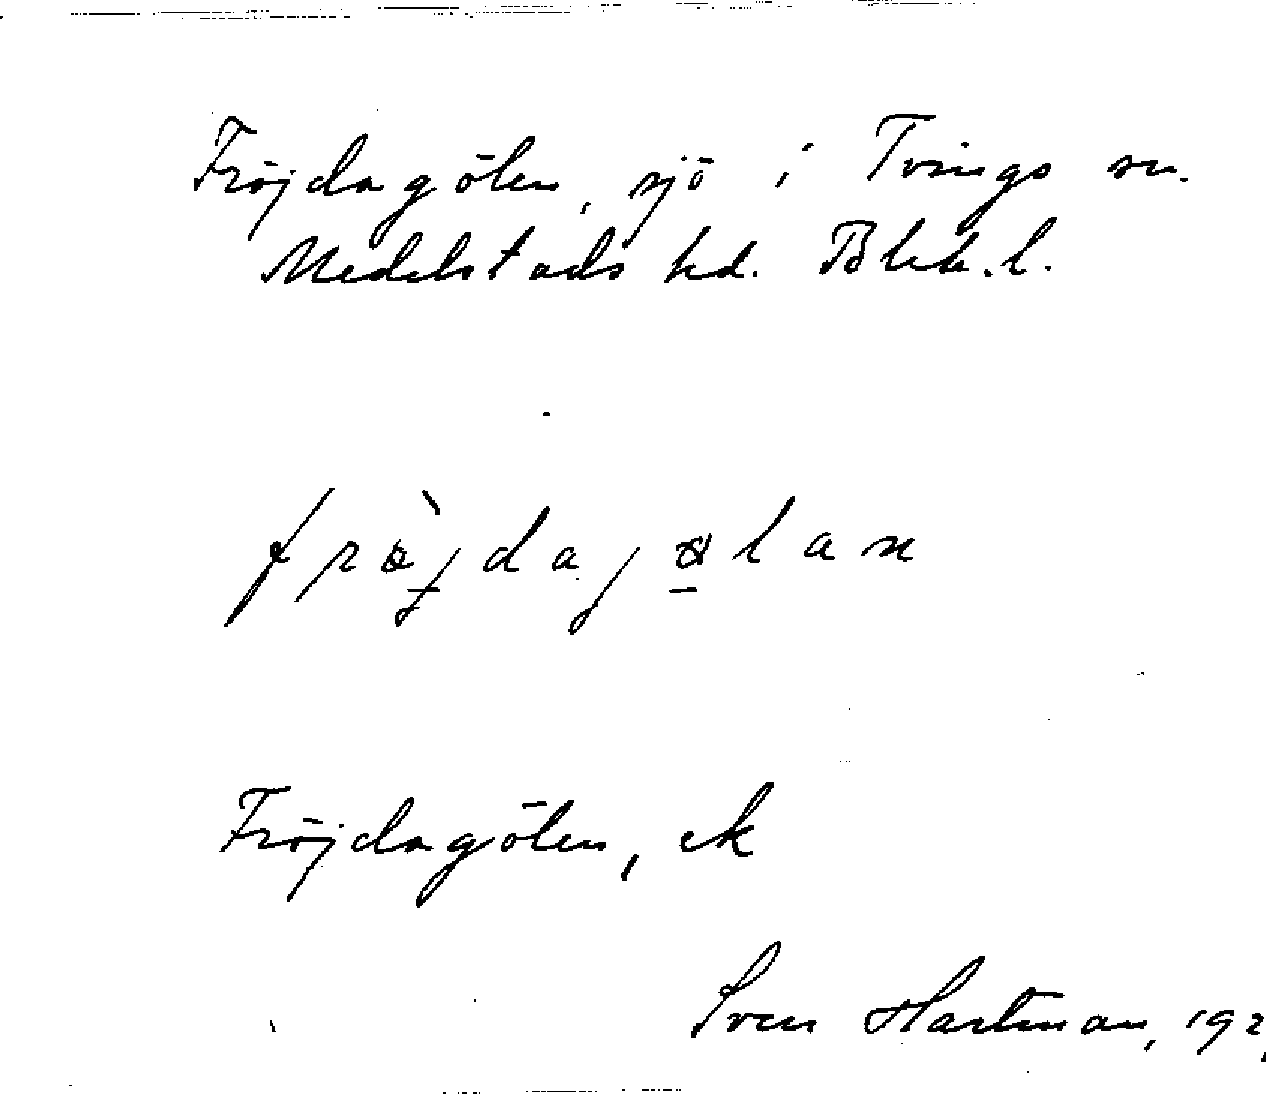 Fröjdagölen, sjö i Tvings sn.
Medelstads hd. Blek.l.
frö̀jdajølan
Fröjdagölen, ek
Sven Hartman, 192